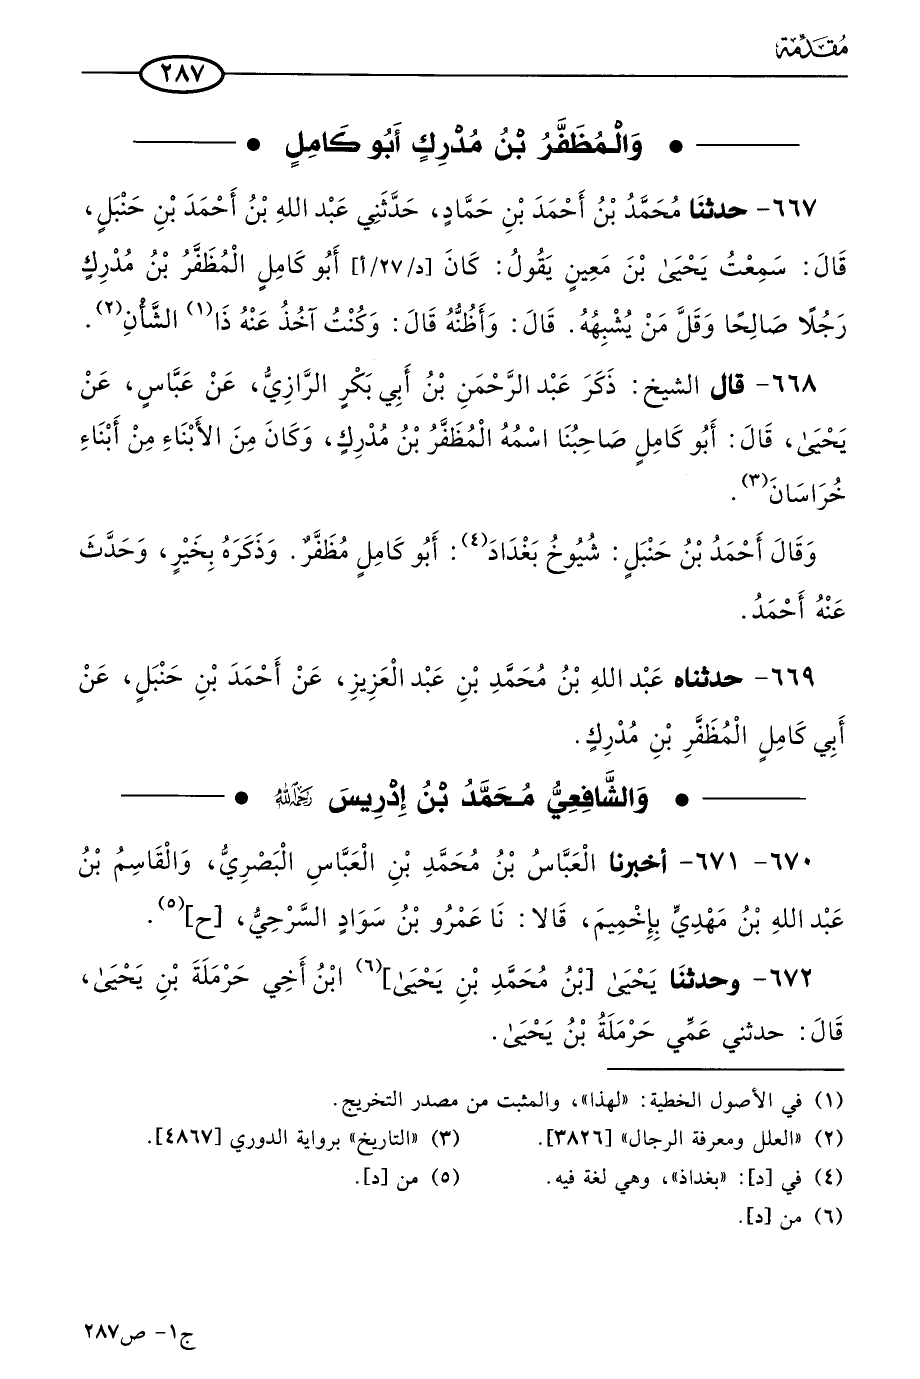 مُقَدِّمَة
٢٨٧
• وَالْمُظَفَّرُ بْنُ مُدْرِكٍ أَبُو كَامِلٍ •
٦٦٧- حدثنَا مُحَمَّدُ بْنُ أَحْمَدَ بْنِ حَمَّادٍ، حَدَّثَنِي عَبْد اللهِ بْنُ أَحْمَدَ بْنِ حَنْبَلٍ،
قَالَ: سَمِعْتُ يَحْيَىٰ بْنَ مَعِينٍ يَقُولُ: كَانَ [د/٢٧/أ] أَبُو كَامِلٍ الْمُظَفَّرُ بْنُ مُدْرِكٍ
رَجُلًا صَالِحًا وَقَلَّ مَنْ يُشْبِهُهُ. قَالَ: وَأَظُنُّهُ قَالَ: وَكُنْتُ آخُذُ عَنْهُ ذَا(١) الشَّأْنِ(٢).
٦٦٨- قال الشيخ: ذَكَرَ عَبْد الرَّحْمَنِ بْنُ أَبِي بَكْرٍ الرَّازِيُّ، عَنْ عَبَّاسٍ، عَنْ
يَحْيَىٰ، قَالَ: أَبُو كَامِلٍ صَاحِبُنَا اسْمُهُ الْمُظَفَّرُ بْنُ مُدْرِكٍ، وَكَانَ مِنَ الأَبْنَاءِ مِنْ أَبْنَاءِ
خُرَاسَانَ(٣).
وَقَالَ أَحْمَدُ بْنُ حَنْبَلٍ: شُيُوخُ بَغْدَادَ(٤): أَبُو كَامِلٍ مُظَفَّرٌ. وَذَكَرَهُ بِخَيْرٍ، وَحَدَّثَ
عَنْهُ أَحْمَدُ.
٦٦٩- حدثناه عَبْد اللهِ بْنُ مُحَمَّدِ بْنِ عَبْد الْعَزِيزِ، عَنْ أَحْمَدَ بْنِ حَنْبَلٍ، عَنْ
أَبِي كَامِلٍ الْمُظَفَّرِ بْنِ مُدْرِكٍ.
• وَالشَّافِعِيُّ مُحَمَّدُ بْنُ إِدْرِيسَ رَحِمَهُ اللهُ •
٦٧٠- ٦٧١- أخبرنا الْعَبَّاسُ بْنُ مُحَمَّدِ بْنِ الْعَبَّاسِ الْبَصْرِيُّ، وَالْقَاسِمُ بْنُ
عَبْد اللهِ بْنُ مَهْدِيٍّ بِإِخْمِيمَ، قَالا: نَا عَمْرُو بْنُ سَوَادٍ السَّرْحِيُّ، [ح](٥).
٦٧٢- وحدثنَا يَحْيَىٰ [بْنُ مُحَمَّدِ بْنِ يَحْيَىٰ](٦) ابْنُ أَخِي حَرْمَلَةَ بْنِ يَحْيَىٰ،
قَالَ: حدثني عَمِّي حَرْمَلَةُ بْنُ يَحْيَىٰ.
(١) في الأصول الخطية: «لهذا»، والمثبت من مصدر التخريج.
(٢) «العلل ومعرفة الرجال» [٣٨٢٦]. (٣) «التاريخ» برواية الدوري [٤٨٦٧].
(٤) في [د]: «بغداذ»، وهي لغة فيه. (٥) من [د].
(٦) من [د].
ج١- ص٢٨٧